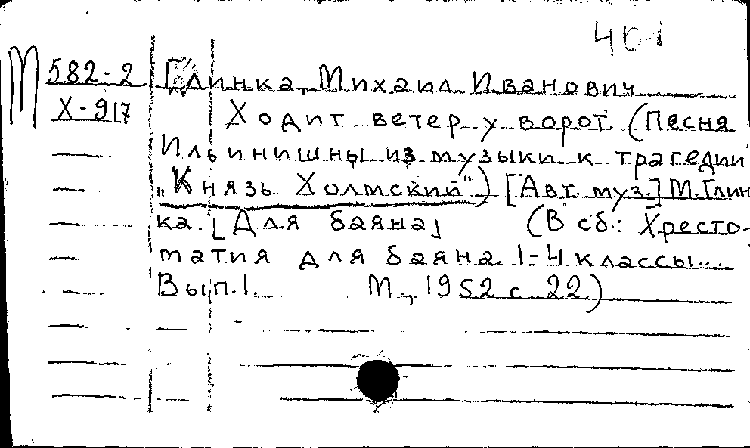 401
М 582-2 Глинка, Михаил Иванович
Х-917 Ходит ветер у ворот (Песня
Ильинишны из музыки к трагедии
"Князь Холмский") [Авт. муз.] М. Глин
ка. [Для баяна] (В сб.: Хресто-
матия для баяна. 1-4 классы...
Вып. 1. М., 1952 с. 22)